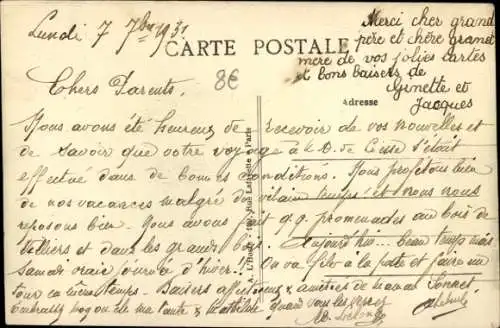 Lundi 7 7bre 1931
Merci cher grand
père et chère grand
mère de vos jolies cartes
et bons baisers de
Ginette et
Jacques
CARTE POSTALE
8€
Adresse
Chers Parents.
Nous avons été heureux de recevoir de vos nouvelles et
de savoir que votre voyage à la s'était
effectué dans de bonnes conditions. Nous profitons bien
de nos vacances malgré du vilain temps! et nous nous
reposons bien. Nous avons fait q.q. promenades au bois de
Villiers et dans les grands bois. Aujourd'hui... beau temps mais
Samedi vraie journée d'hiver!! On va filer à la poste et faire un
tour en même temps. Baisers affectueux et amitiés de
Embrassez ma tante & Mathilde quand vous les verrez
Rue Lafayette Paris